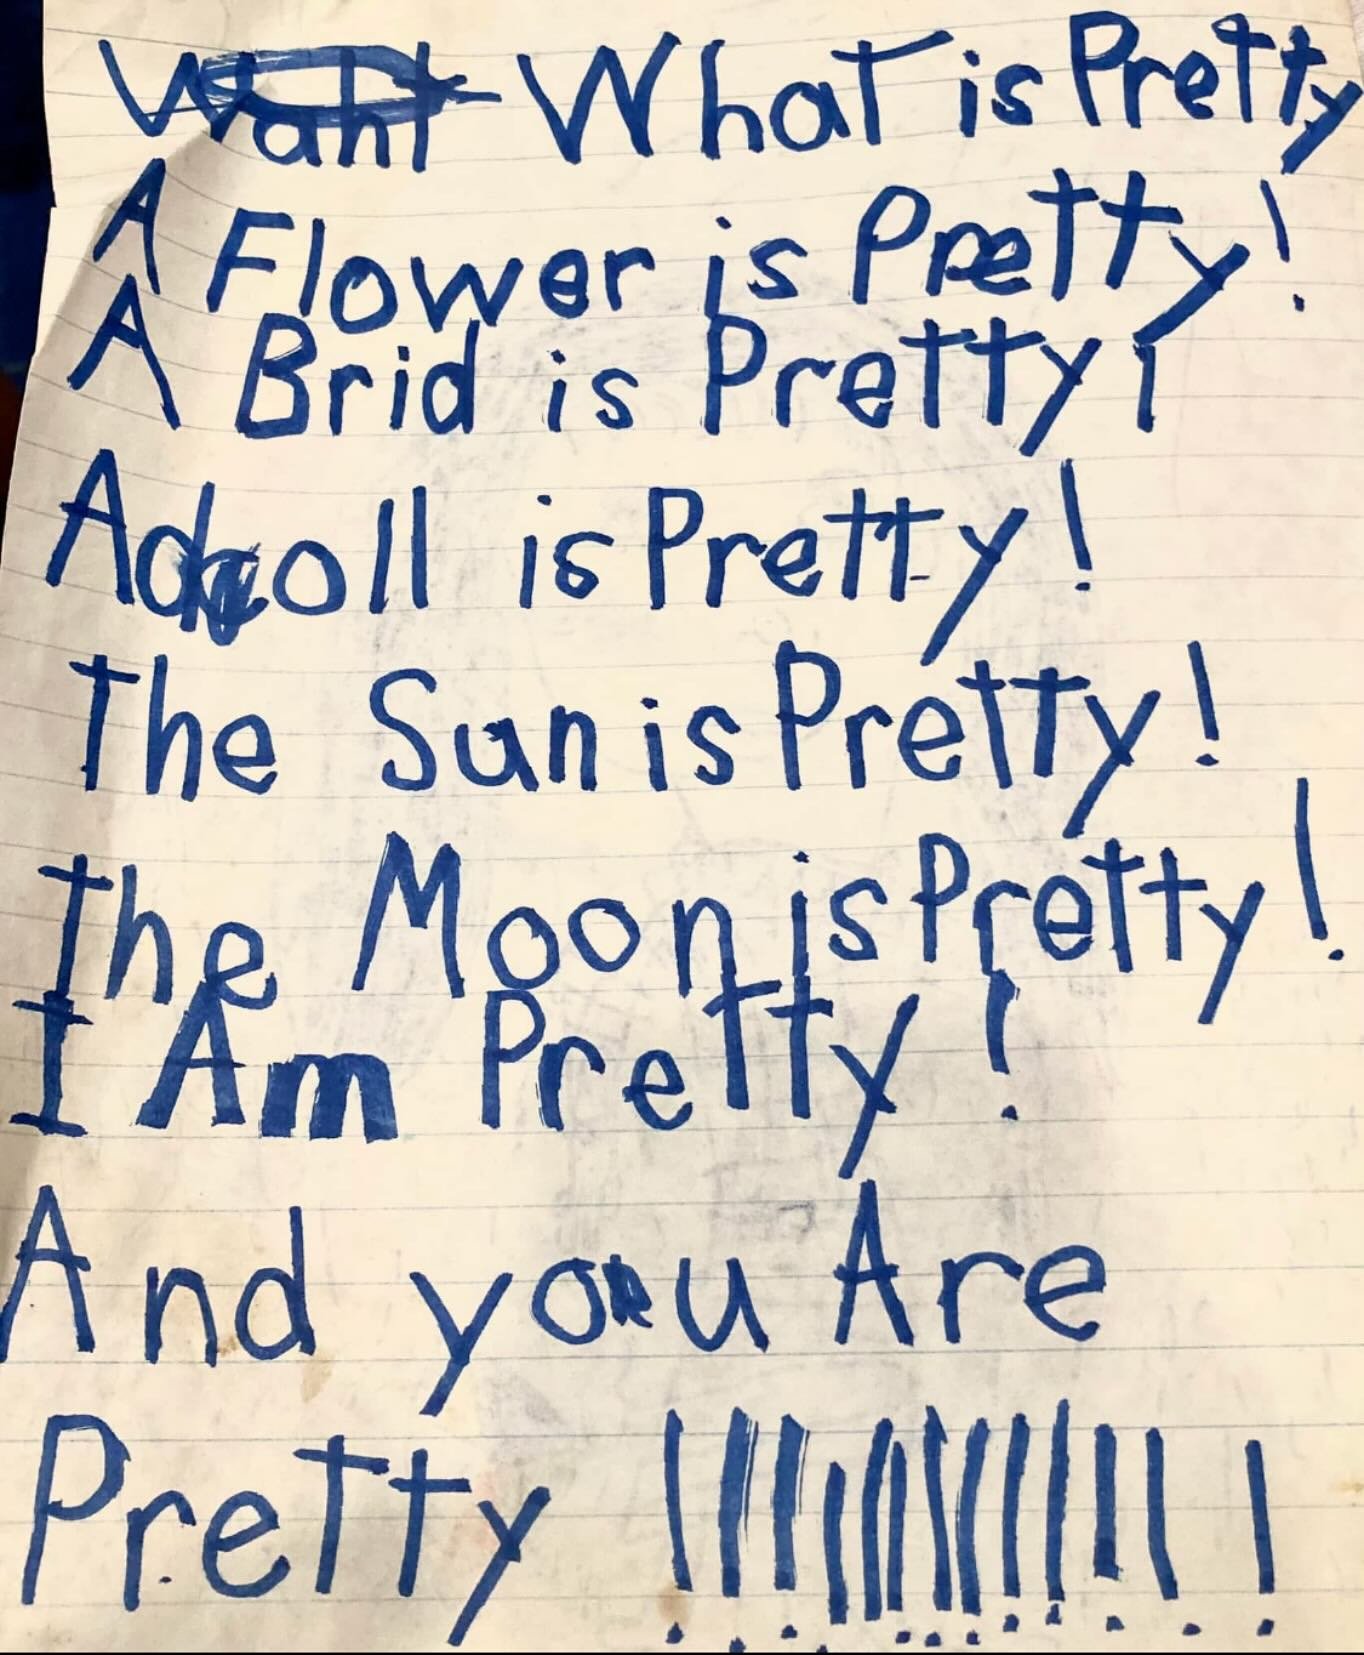 Waht What is Pretty
A Flower is Pretty!
A Brid is Pretty!
A doll is Pretty!
The Sun is Pretty!
The Moon is Pretty!
I Am Pretty!
And you Are
Pretty !!!!!!!!!!!!!